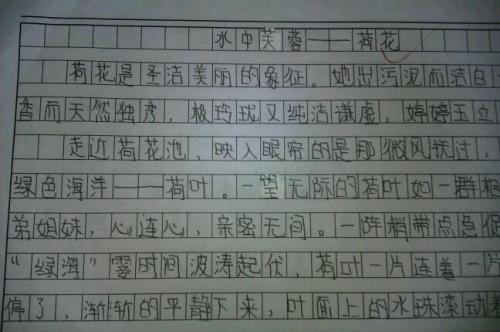 水中芙蓉——荷花
荷花是圣洁美丽的象征。她出污泥而洁白
香而天然独秀，极玲珑又纯洁谦虚，婷婷玉立
走近荷花池，映入眼帘的是那微风抚过，
绿色海洋——荷叶。一望无际的荷叶如一群相
弟姐妹，心连心，亲密无间。一阵稍带点急促
“绿海”霎时间波涛起伏，荷叶一片连着一片
停了，渐渐的平静下来，叶面上的水珠滚动着